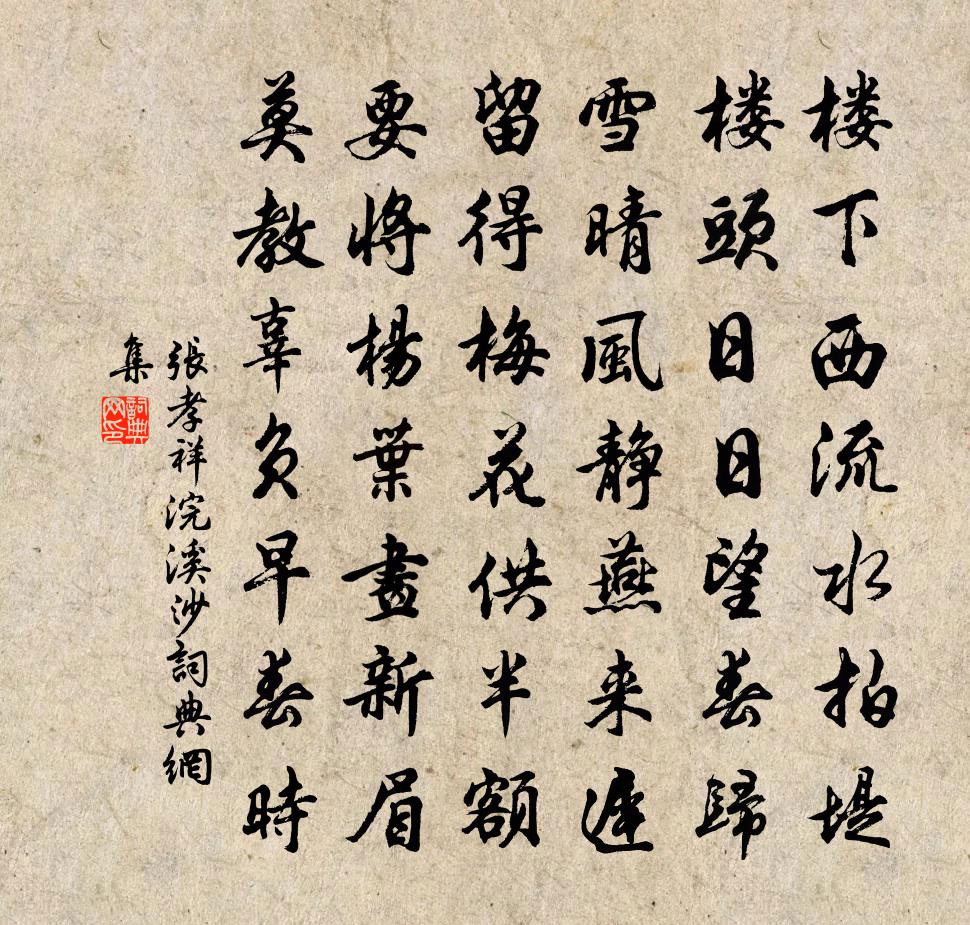 楼下西流水拍堤
楼頭日日望春歸
雪晴風静燕来遲
留得梅花供半額
要將楊葉畫新眉
莫教辜負早春時
張孝祥浣溪沙詞典網
集
詞典
网印